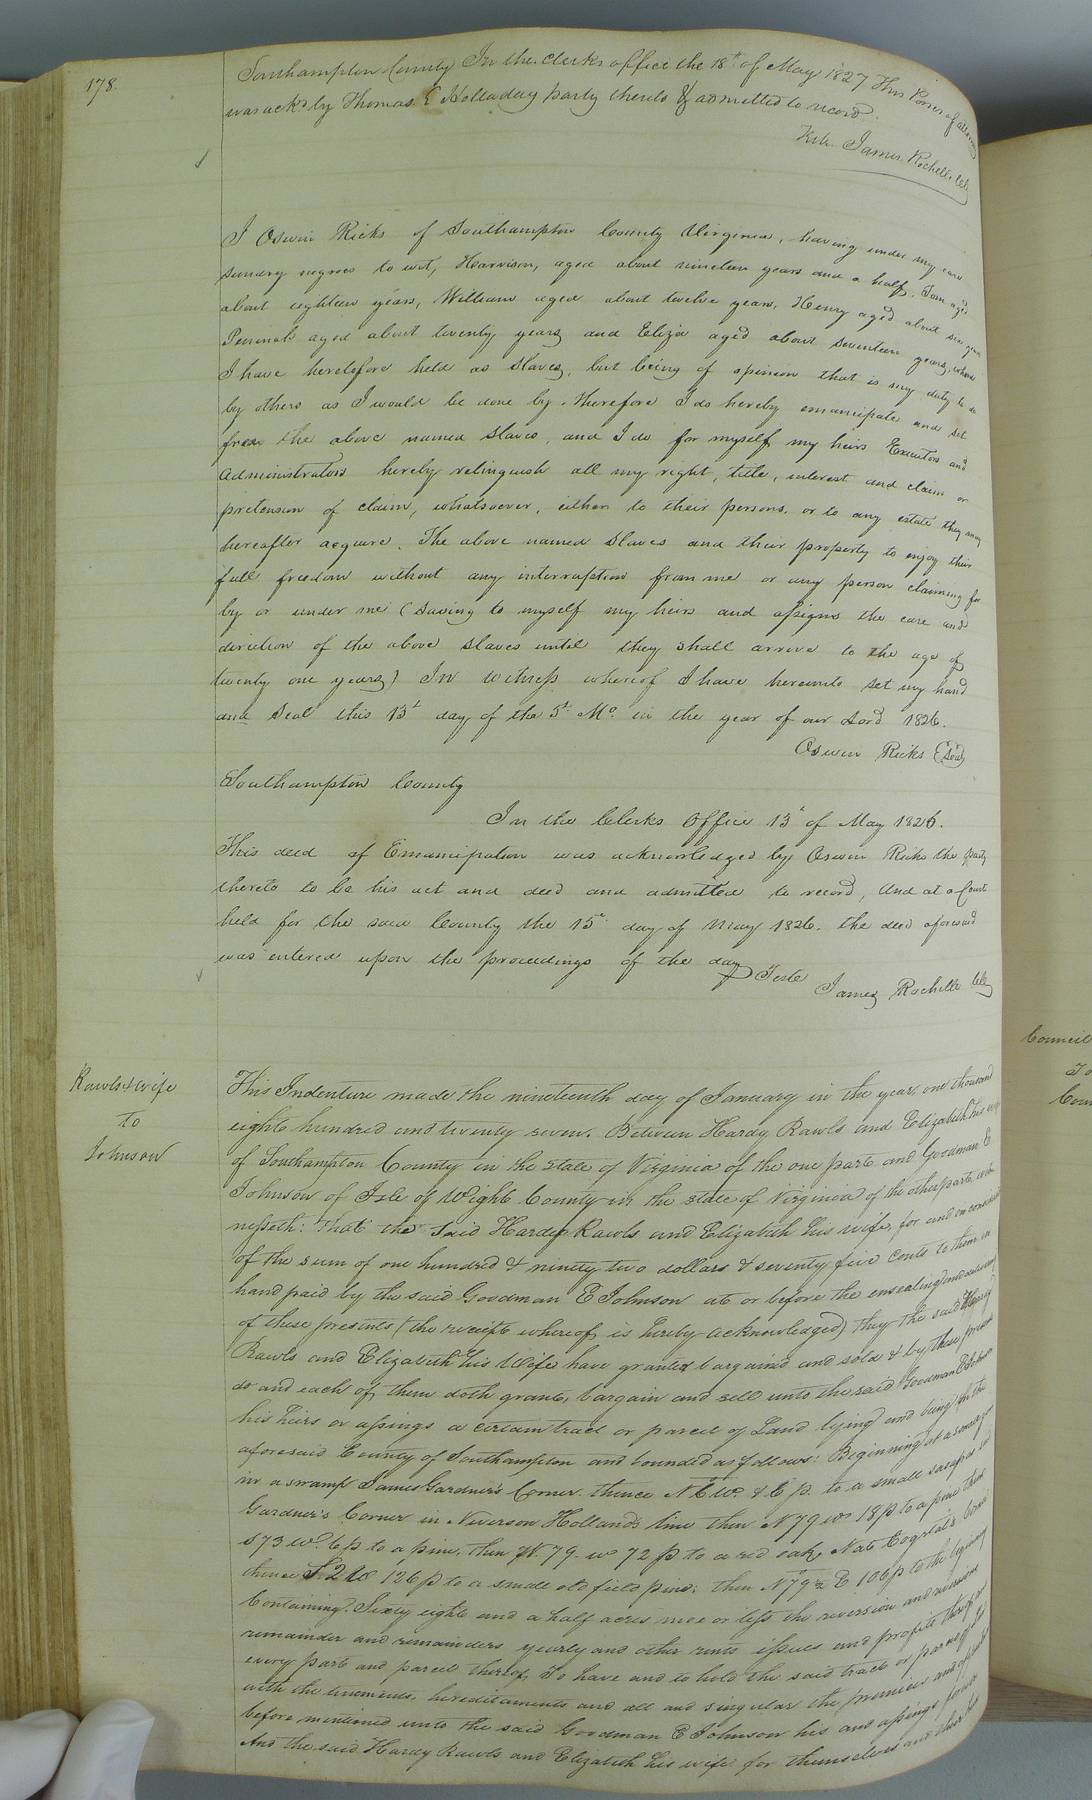 178.
Southampton County In the Clerks office the 18th of May 1827 This Power of attorney
was ackd by Thomas E Holladay party thereto & admitted to record.
Teste James Rochelle Clk
I Oswin Ricks of Southampton County Virginia, having under my care
sundry negroes to wit, Harrison, aged about nineteen years and a half, Sam aged
about eighteen years, William aged about twelve years, Henry aged about six years
Peninah aged about twenty years and Eliza aged about seventeen years, whom
I have heretofore held as slaves, but being of opinion that is my duty to do
by others as I would be done by. Therefore I do hereby emancipate and set
free the above named slaves, and I do for myself my heirs Executors and
administrators hereby relinquish all my right, title, interest and claim or
pretension of claim, whatsoever, either to their persons, or to any estate they may
hereafter acquire. The above named slaves and their property to enjoy their
full freedom without any interruption from me or any person claiming for
by or under me (saving to myself my heirs and assigns the care and
direction of the above slaves until they shall arrive to the age of
twenty one years) In witness whereof I have hereunto set my hand
and seal this 13th day of the 5th Mo. in the year of our Lord 1826.
Oswin Ricks (Seal)
Southampton County
In the Clerks Office 13th of May 1826.
This deed of Emancipation was acknowledged by Oswin Ricks the party
thereto to be his act and deed and admitted to record, And at a Court
held for the said County the 15th day of May 1826. the deed aforesaid
was entered upon the proceedings of the day
Teste James Rochelle Clk
Rawls & wife
to
Johnson
This Indenture made the nineteenth day of January in the year, one thousand
eight hundred and twenty seven. Between Hardy Rawls and Elizabeth his wife
of Southampton County in the state of Virginia of the one part and Goodman E
Johnson of Isle of Wight County in the state of Virginia of the other part, wit
nesseth: That the said Hardy Rawls and Elizabeth his wife, for and in consideration
of the sum of one hundred & ninety two dollars & seventy five cents to them in
hand paid by the said Goodman E Johnson at or before the ensealing and delivery
of these presents (the receipt whereof is hereby acknowledged) they the said Hardy
Rawls and Elizabeth his wife have granted bargained and sold & by these presents
do and each of them doth grant, bargain and sell unto the said Goodman E Johnson
his heirs or assings a certain tract or parcel of Land lying and being in the
aforesaid County of Southampton and bounded as follows: Beginning at a
in a swamp James Gardner's Corner. thence N E W. & E p. to a small
Gardner's Corner in Neverson Hollands line then N 79 wo 18 p to a pine then
S 73 wo. 6 p to a pine, then N. 79 wo 72 p to a red oak, Nat
thence S. 2 W 126 p to a small old field pine; then N 79 E 106 p to the begining
Containing. Sixty eight and a half acres more or less the reversion and reversions
remainder and remainders yearly and other rents issues and profits thereof
every part and parcel thereof, To have and to hold the said tract or parcel
with the tenements, hereditaments and all and singular the premises and
before mentioned unto the said Goodman E Johnson his and assings forever
And the said Hardy Rawls and Elizabeth his wife for themselves and their
Council
To